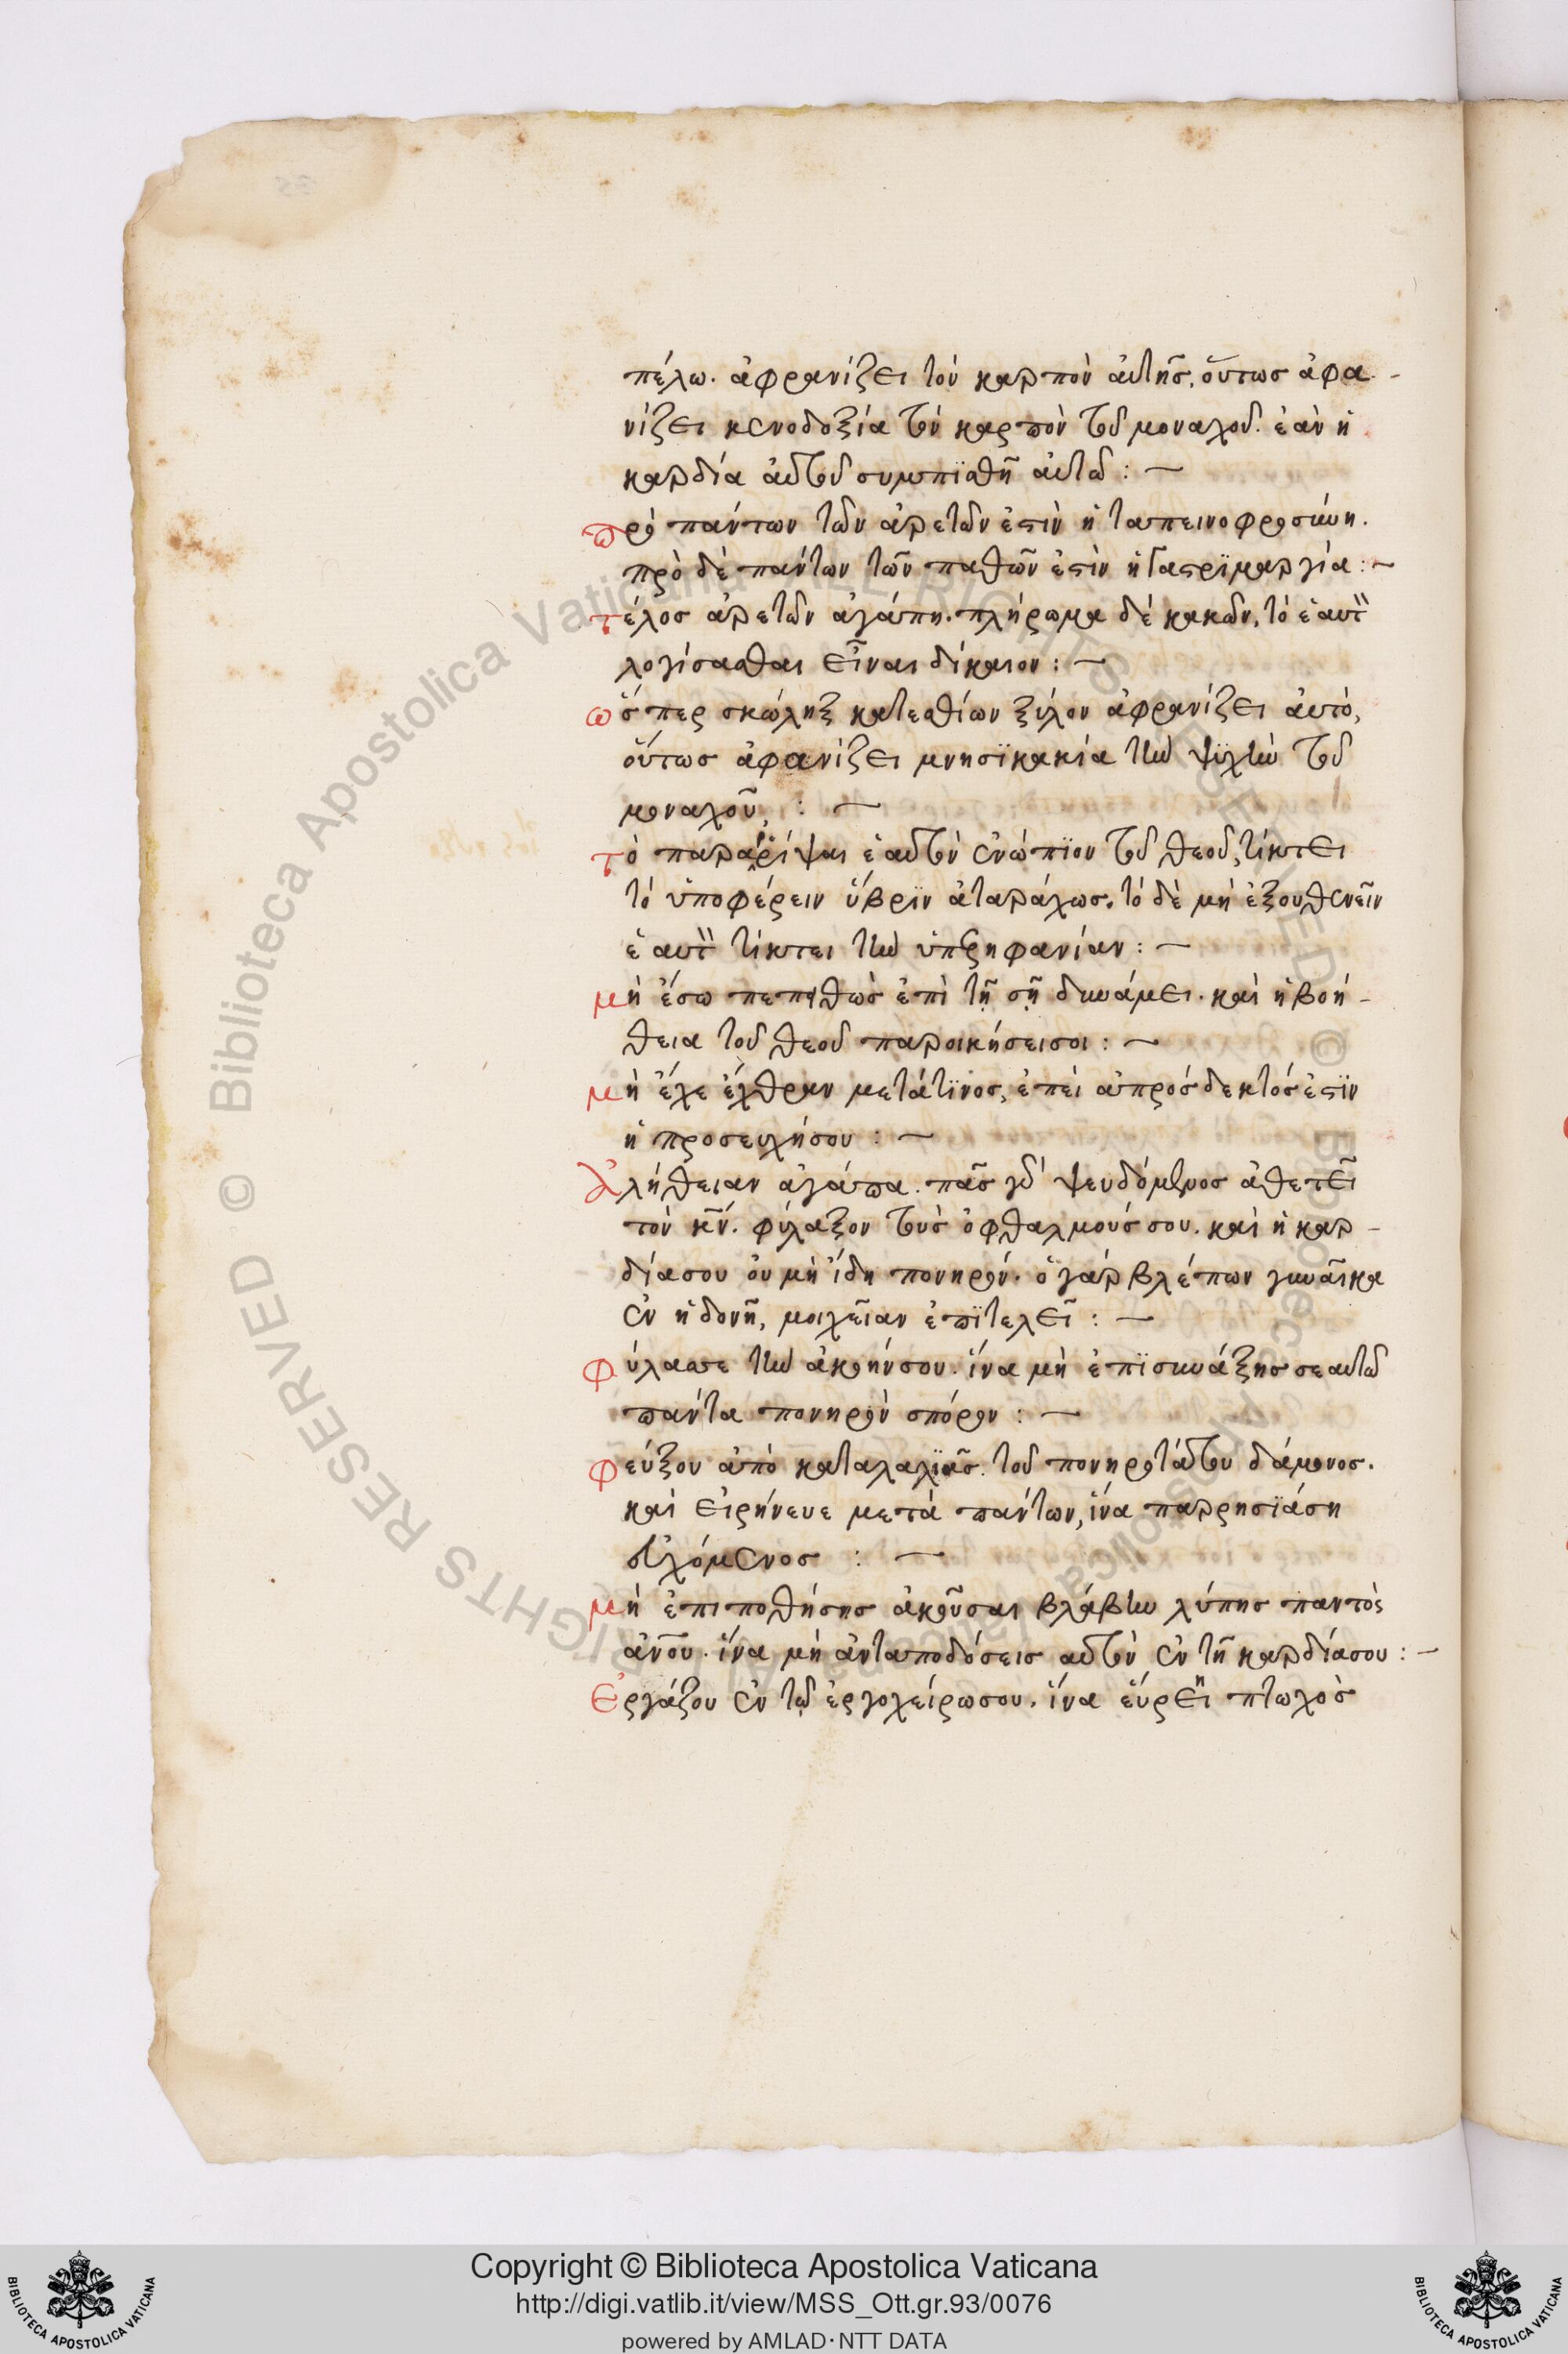 πέλω. ἀφρανίζει τὸν καρπὸν ἀυτῆς, οὕτως ἀφα-
νίζει κενοδοξία τὸν καρπὸν τοῦ μοναχοῦ. ἐὰν ἡ
καρδία ἀυτοῦ συμπϊαθῆ ἀυτῶ : —
πρὸ πάντων τῶν ἀρετῶν ἐστὶν ἡ ταπεινοφροσύνη.
πρὸ δὲ πάντων τῶν παθῶν ἐστὶν ἡ γαστρϊμαργία : —
τέλος ἀρετῶν ἀγάπη. πλήρωμα δὲ κακῶν, τὸ ἑαυτ̏
λογίσασθαι εἶναι δίκαιον : —
ὥσπερ σκώληξ κατεσθίων ξύλον ἀφρανίζει ἀυτὸ,
οὕτως ἀφανίζει μνησϊκακία τὴν ψϋχὴν τοῦ
μοναχοῦ, : —
τὸ παραρίψαι ἑαυτὸν ἐνώπϊον τοῦ θεοῦ, τίκτει
τὸ ὑποφέρειν ὕβρϊν ἀταράχως. τὸ δὲ μὴ ἐξουθενεῖν
ἑαυτ̏ τίκτει τὴν ὑπερηφανίαν : —
μὴ ἔσω πεπηθὼς ἐπὶ τῇ σῇ δυνάμει. καὶ ἡ βοή-
θεια τοῦ θεοῦ παροικήσεισοι : —
μὴ ἔχε ἔχθραν μετάτϊνος, ἐπεὶ ἀπρόσδεκτός ἐστϊν
ἡ προσευχήσου : —
Ἀλήθειαν ἀγάπα. πᾶς γὰρ ψευδόμενος ἀθετεῖ
τὸν κ̅ν̅. φύλαξον τοὺς ὀφθαλμούς σου. καὶ ἡ καρ-
δίασου οὐ μὴ ἴδη πονηρόν. ὁ γὰρ βλέπων γυναῖκα
ἐν ἡδονῆ, μοιχεῖαν ἐπϊτελεῖ : —
φύλασσε τὴν ἀκοήνσου. ἵνα μὴ ἐπϊσυνάξης σεαυτῶ
πάντα πονηρὸν σπόρον : —
φεῦξον ἀπὸ καταλαλϊᾶς. τοῦ πονηροτάτου δάμονος.
καὶ εἰρήνευε μετὰ πάντων, ἵνα παρρησϊάση
εὐχόμενος : —
μὴ ἐπιποθήσης ἀκοῦσαι βλάβην λύπης παντὸς
ἀν̅ου. ἵνα μὴ ἀνταποδόσεις αὐτὸν ἐν τῆ καρδίασου : —
Ἐργάζου ἐν τῷ ἐργοχείρωσου. ἵνα εὕρει πτωχὸς
Copyright © Biblioteca Apostolica Vaticana
http://digi.vatlib.it/view/MSS_Ott.gr.93/0076
powered by AMLAD·NTT DATA